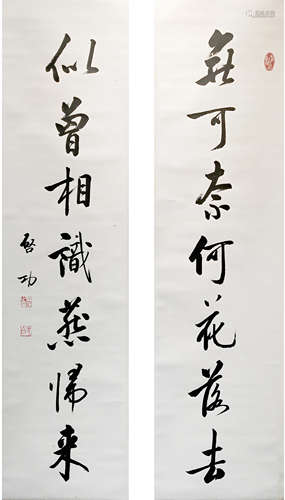 無可奈何花落去
似曾相識燕歸来
啓功